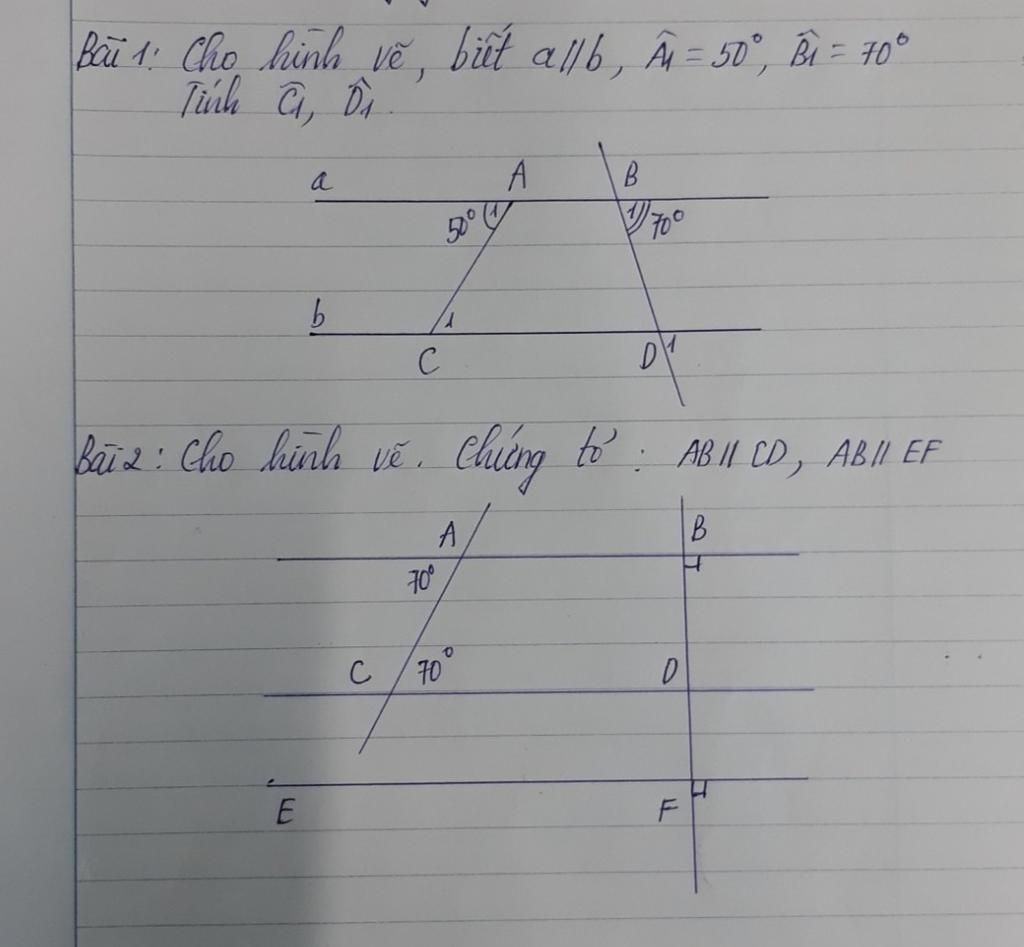 Bài 1: Cho hình vẽ, biết a//b, Â1 = 50°, B̂1 = 70°
Tính Ĉ1, D̂1.
a A B
50° 1 1 70°
b 1
C D 1
Bài 2: Cho hình vẽ. Chứng tỏ: AB // CD, AB // EF
A B
70°
C 70° D
E F